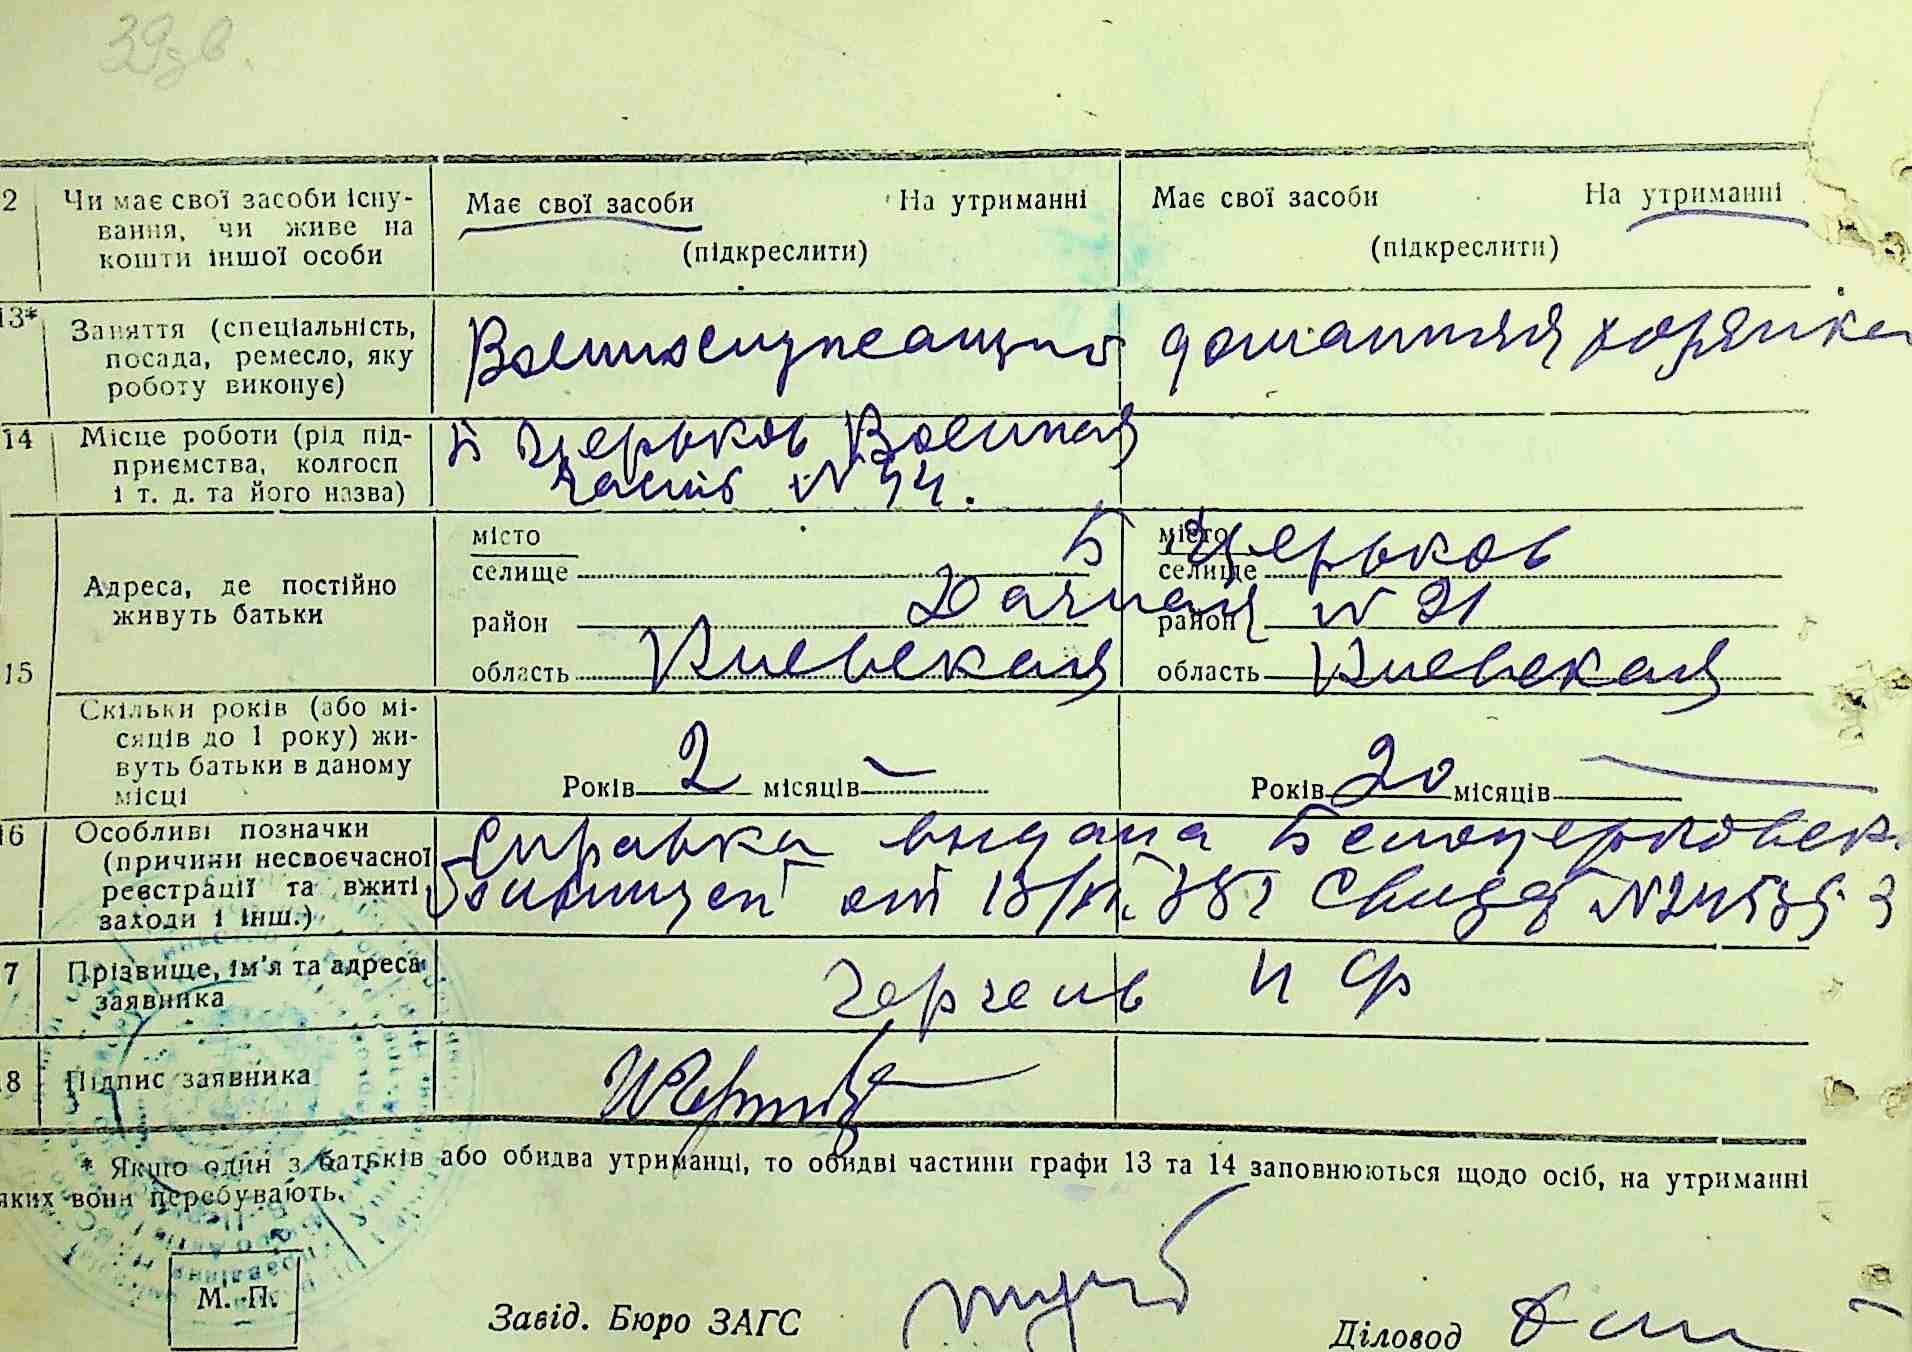 39зв.
2 Чи має свої засоби існу-
вання, чи живе на
кошти іншої особи
Має свої засоби На утриманні
(підкреслити)
Має свої засоби На утриманні
(підкреслити)
13* Заняття (спеціальність,
посада, ремесло, яку
роботу виконує)
Военнослужащий
домашняя хозяйка
14 Місце роботи (рід під-
приємства, колгосп
і т. д. та його назва)
Б Церьков Военная
часть N 44.
15 Адреса, де постійно
живуть батьки
місто
селище
район
область Киевская
місто
селище
район
область Киевская
Б Церьков
Дачная N 21
Скільки років (або мі-
сяців до 1 року) жи-
вуть батьки в даному
місці
Років 2 місяців —
Років 20 місяців —
16 Особливі позначки
(причини несвоєчасної
реєстрації та вжиті
заходи і інш.)
Справка выдана Белоцерковск.
больницей от 13
7 Прізвище, ім'я та адреса
заявника
И Ф
18 Підпис заявника
* Якщо один з батьків або обидва утриманці, то обидві частини графи 13 та 14 заповнюються щодо осіб, на утриманні
яких вони перебувають.
М. П.
Завід. Бюро ЗАГС
Діловод